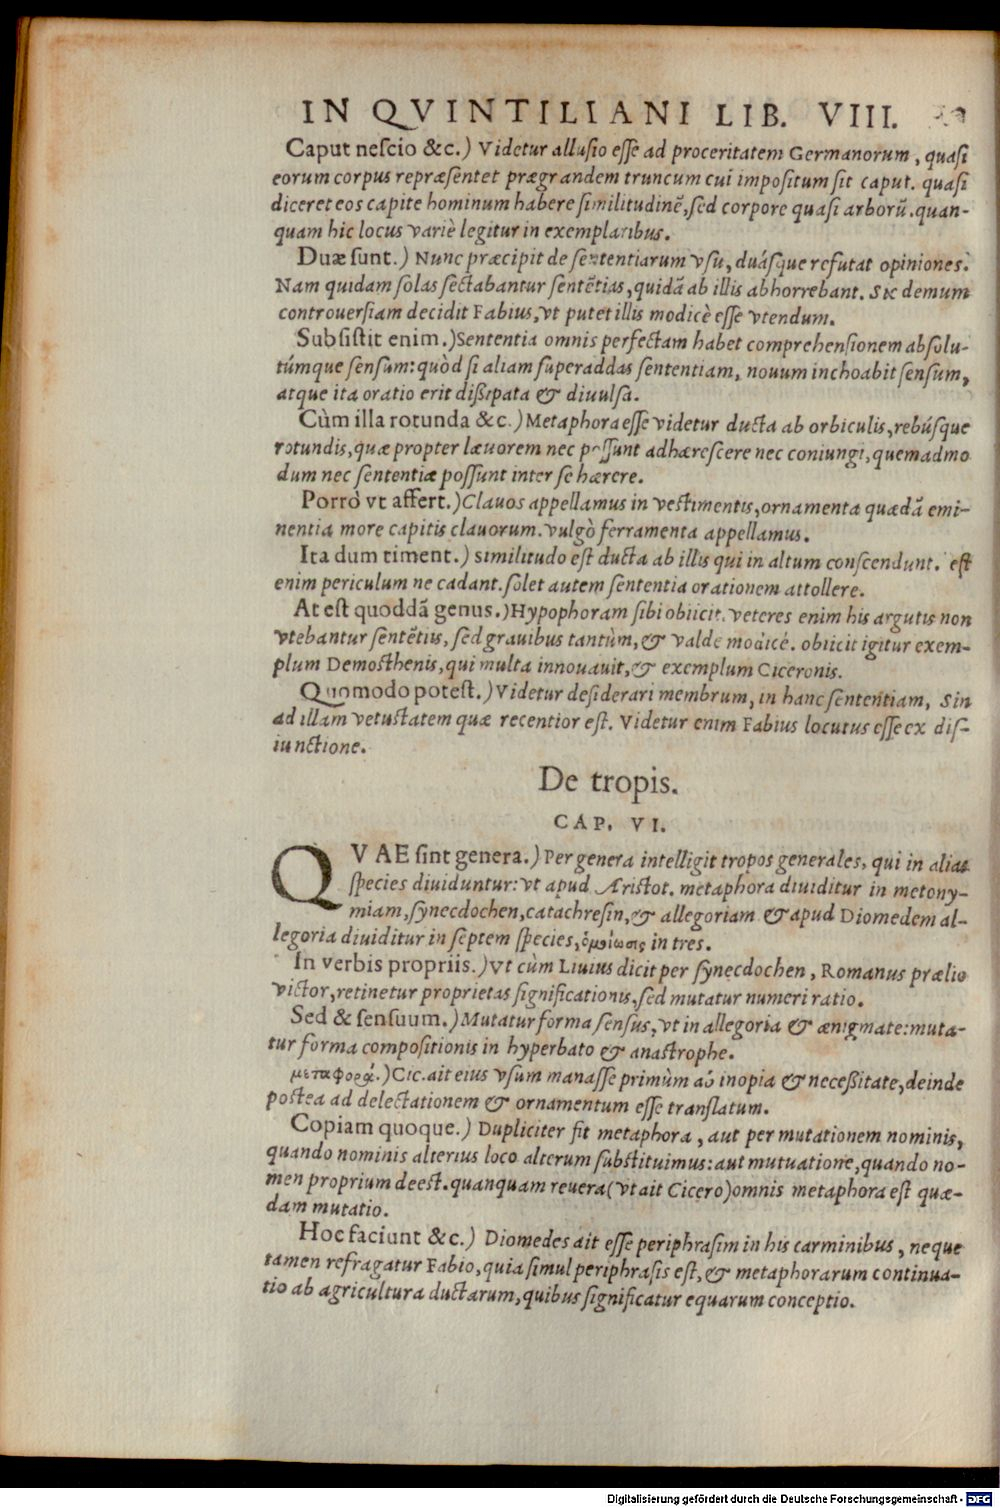 IN QVINTILIANI LIB. VIII.
Caput nescio &c.) Videtur allusio esse ad proceritatem Germanorum, quasi
eorum corpus repræsentet prægrandem truncum cui impositum sit caput. quasi
diceret eos capite hominum habere similitudinē, sed corpore quasi arborū. quan-
quam hic locus variè legitur in exemplaribus.
Duæ sunt.) Nunc præcipit de sententiarum vsu, duásque refutat opiniones.
Nam quidam solas sectabantur sentētias, quidā ab illis abhorrebant. Sic demum
controuersiam decidit Fabius, vt putet illis modicè esse vtendum.
Subsistit enim.) Sententia omnis perfectam habet comprehensionem absolu-
túmque sensum: quòd si aliam superaddas sententiam, nouum inchoabit sensum,
atque ita oratio erit dißipata & diuulsa.
Cùm illa rotunda &c.) Metaphora esse videtur ducta ab orbiculis, rebúsque
rotundis, quæ propter læuorem nec possunt adhærescere nec coniungi, quemadmo
dum nec sententiæ possunt inter se hærere.
Porrò vt affert.) Clauos appellamus in vestimentis, ornamenta quædā emi-
nentia more capitis clauorum. vulgò ferramenta appellamus.
Ita dum timent.) Similitudo est ducta ab illis qui in altum conscendunt. est
enim periculum ne cadant. solet autem sententia orationem attollere.
At est quoddā genus.) Hypophoram sibi obiicit. veteres enim his argutis non
vtebantur sentētiis, sed grauibus tantùm, & valde modicè. obiicit igitur exem-
plum Demosthenis, qui multa innouauit, & exemplum Ciceronis.
Quomodo potest.) Videtur desiderari membrum, in hanc sententiam, Sin
ad illam vetustatem quæ recentior est. Videtur enim Fabius locutus esse ex dis-
iunctione.
De tropis.
CAP. VI.
QVAE sint genera.) Per genera intelligit tropos generales, qui in alias
species diuiduntur: vt apud Aristot. metaphora diuiditur in metony-
miam, synecdochen, catachresin, & allegoriam & apud Diomedem al-
legoria diuiditur in septem species, ὁμοίωσις in tres.
In verbis propriis.) Vt cùm Liuius dicit per synecdochen, Romanus prælio
victor, retinetur proprietas significationis, sed mutatur numeri ratio.
Sed & sensuum.) Mutatur forma sensus, vt in allegoria & ænigmate: muta-
tur forma compositionis in hyperbato & anastrophe.
μεταφορά.) Cic. ait eius vsum manasse primùm ab inopia & neceßitate, deinde
postea ad delectationem & ornamentum esse translatum.
Copiam quoque.) Dupliciter fit metaphora, aut per mutationem nominis,
quando nominis alterius loco alterum substituimus: aut mutuatione, quando no-
men proprium deest. quanquam reuera (vt ait Cicero) omnis metaphora est quæ-
dam mutatio.
Hoc faciunt &c.) Diomedes ait esse periphrasim in his carminibus, neque
tamen refragatur Fabio, quia simul periphrasis est, & metaphorarum continua-
tio ab agricultura ductarum, quibus significatur equarum conceptio.
Digitalisierung gefördert durch die Deutsche Forschungsgemeinschaft - DFG